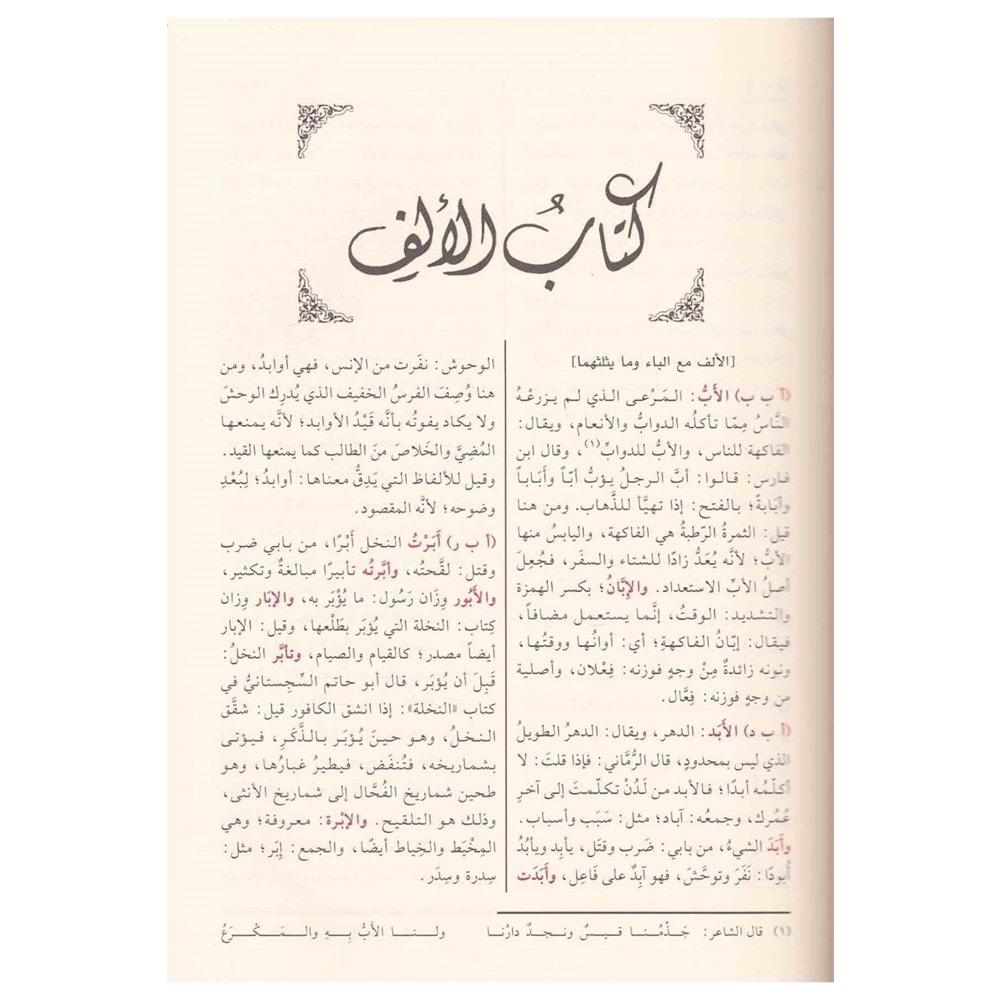 كتابُ الألفِ
[الألف مع الباء وما يثلثهما]
(أ ب ب) الأَبُّ: المَرْعى الذي لم يزرعْهُ
النَّاسُ مِمّا تأكله الدوابُّ والأنعام، ويقال:
الفاكهة للناس، والأبُّ للدوابِّ(١)، وقال ابن
فارس: قالوا: أبَّ الرجلُ يؤبُّ أبّاً وأَبَاباً
وأبابةً؛ بالفتح: إذا تهيَّأ للذَّهاب. ومن هنا
قيل: الثمرةُ الرّطبةُ هي الفاكهة، واليابسُ منها
الأبُّ؛ لأنَّه يُعَدُّ زادًا للشتاء والسفَر، فجُعِلَ
أصلُ الأبِّ الاستعداد. والإِبَّانُ؛ بكسر الهمزة
والتشديد: الوقتُ، إنَّما يستعمل مضافاً،
فيقال: إبّانُ الفاكهةِ؛ أي: أوانُها ووقتُها،
ونونه زائدةٌ مِنْ وجهٍ فوزنه: فِعْلان، وأصلية
من وجهٍ فوزنه: فِعَّال.
(أ ب د) الأَبَد: الدهر، ويقال: الدهرُ الطويلُ
الذي ليس بمحدودٍ، قال الرُّماني: فإذا قلتَ: لا
أكلّمُه أبدًا؛ فالأبد من لَدُنْ تكلّمتَ إلى آخرِ
عُمُرك، وجمعُه: آباد؛ مثل: سَبَب وأسباب.
وأَبَدَ الشيءُ، من بابي: ضَرب وقتَل، يأبِد ويأبُدُ
أُبودًا: نَفَرَ وتوحَّش، فهو آبِدٌ على فَاعِل، وأَبَدَت
الوحوش: نفَرت من الإنس، فهي أوابدُ، ومن
هنا وُصِفَ الفرسُ الخفيف الذي يُدرِك الوحشَ
ولا يكاد يفوتُه بأنَّه قَيْدُ الأوابد؛ لأنَّه يمنعها
المُضِيَّ والخَلاصَ منَ الطالب كما يمنعها القيد.
وقيل للألفاظ التي يَدِقُّ معناها: أوابد؛ لِبُعْدِ
وضوحه؛ لأنَّه المقصود.
(أ ب ر) أَبَرْتُ النخل أَبْرًا، من بابي ضرب
وقتل: لقَّحتُه، وأبَّرتُه تأبيرًا مبالغةٌ وتكثير،
والأَبُور وِزَان رَسُول: ما يُؤْبَر به، والإِبَار وِزان
كِتاب: النخلة التي يُؤبَر بطَلْعها، وقيل: الإبار
أيضاً مصدر؛ كالقيام والصيام، وتأبَّر النخلُ:
قَبِلَ أن يُؤبَر، قال أبو حاتم السِّجِستانيُّ في
كتاب «النخلة»: إذا انشق الكافور قيل: شقَّق
النخلُ، وهو حينَ يُؤبَر بالذَّكَرِ، فيؤتى
بشماريخه، فتُنفَض، فيطيرُ غبارُها، وهو
طحين شماريخ الفُحَّال إلى شماريخ الأنثى،
وذلك هو التلقيح. والإبْرة: معروفة؛ وهي
المِخْيَط والخِياط أيضًا، والجمع: إِبَر؛ مثل:
سِدرة وسِدَر.
(١) قال الشاعر: جَذْمُنا قيسٌ ونجدٌ دارُنا ولنا الأبُّ بِهِ والمَكْرَعُ